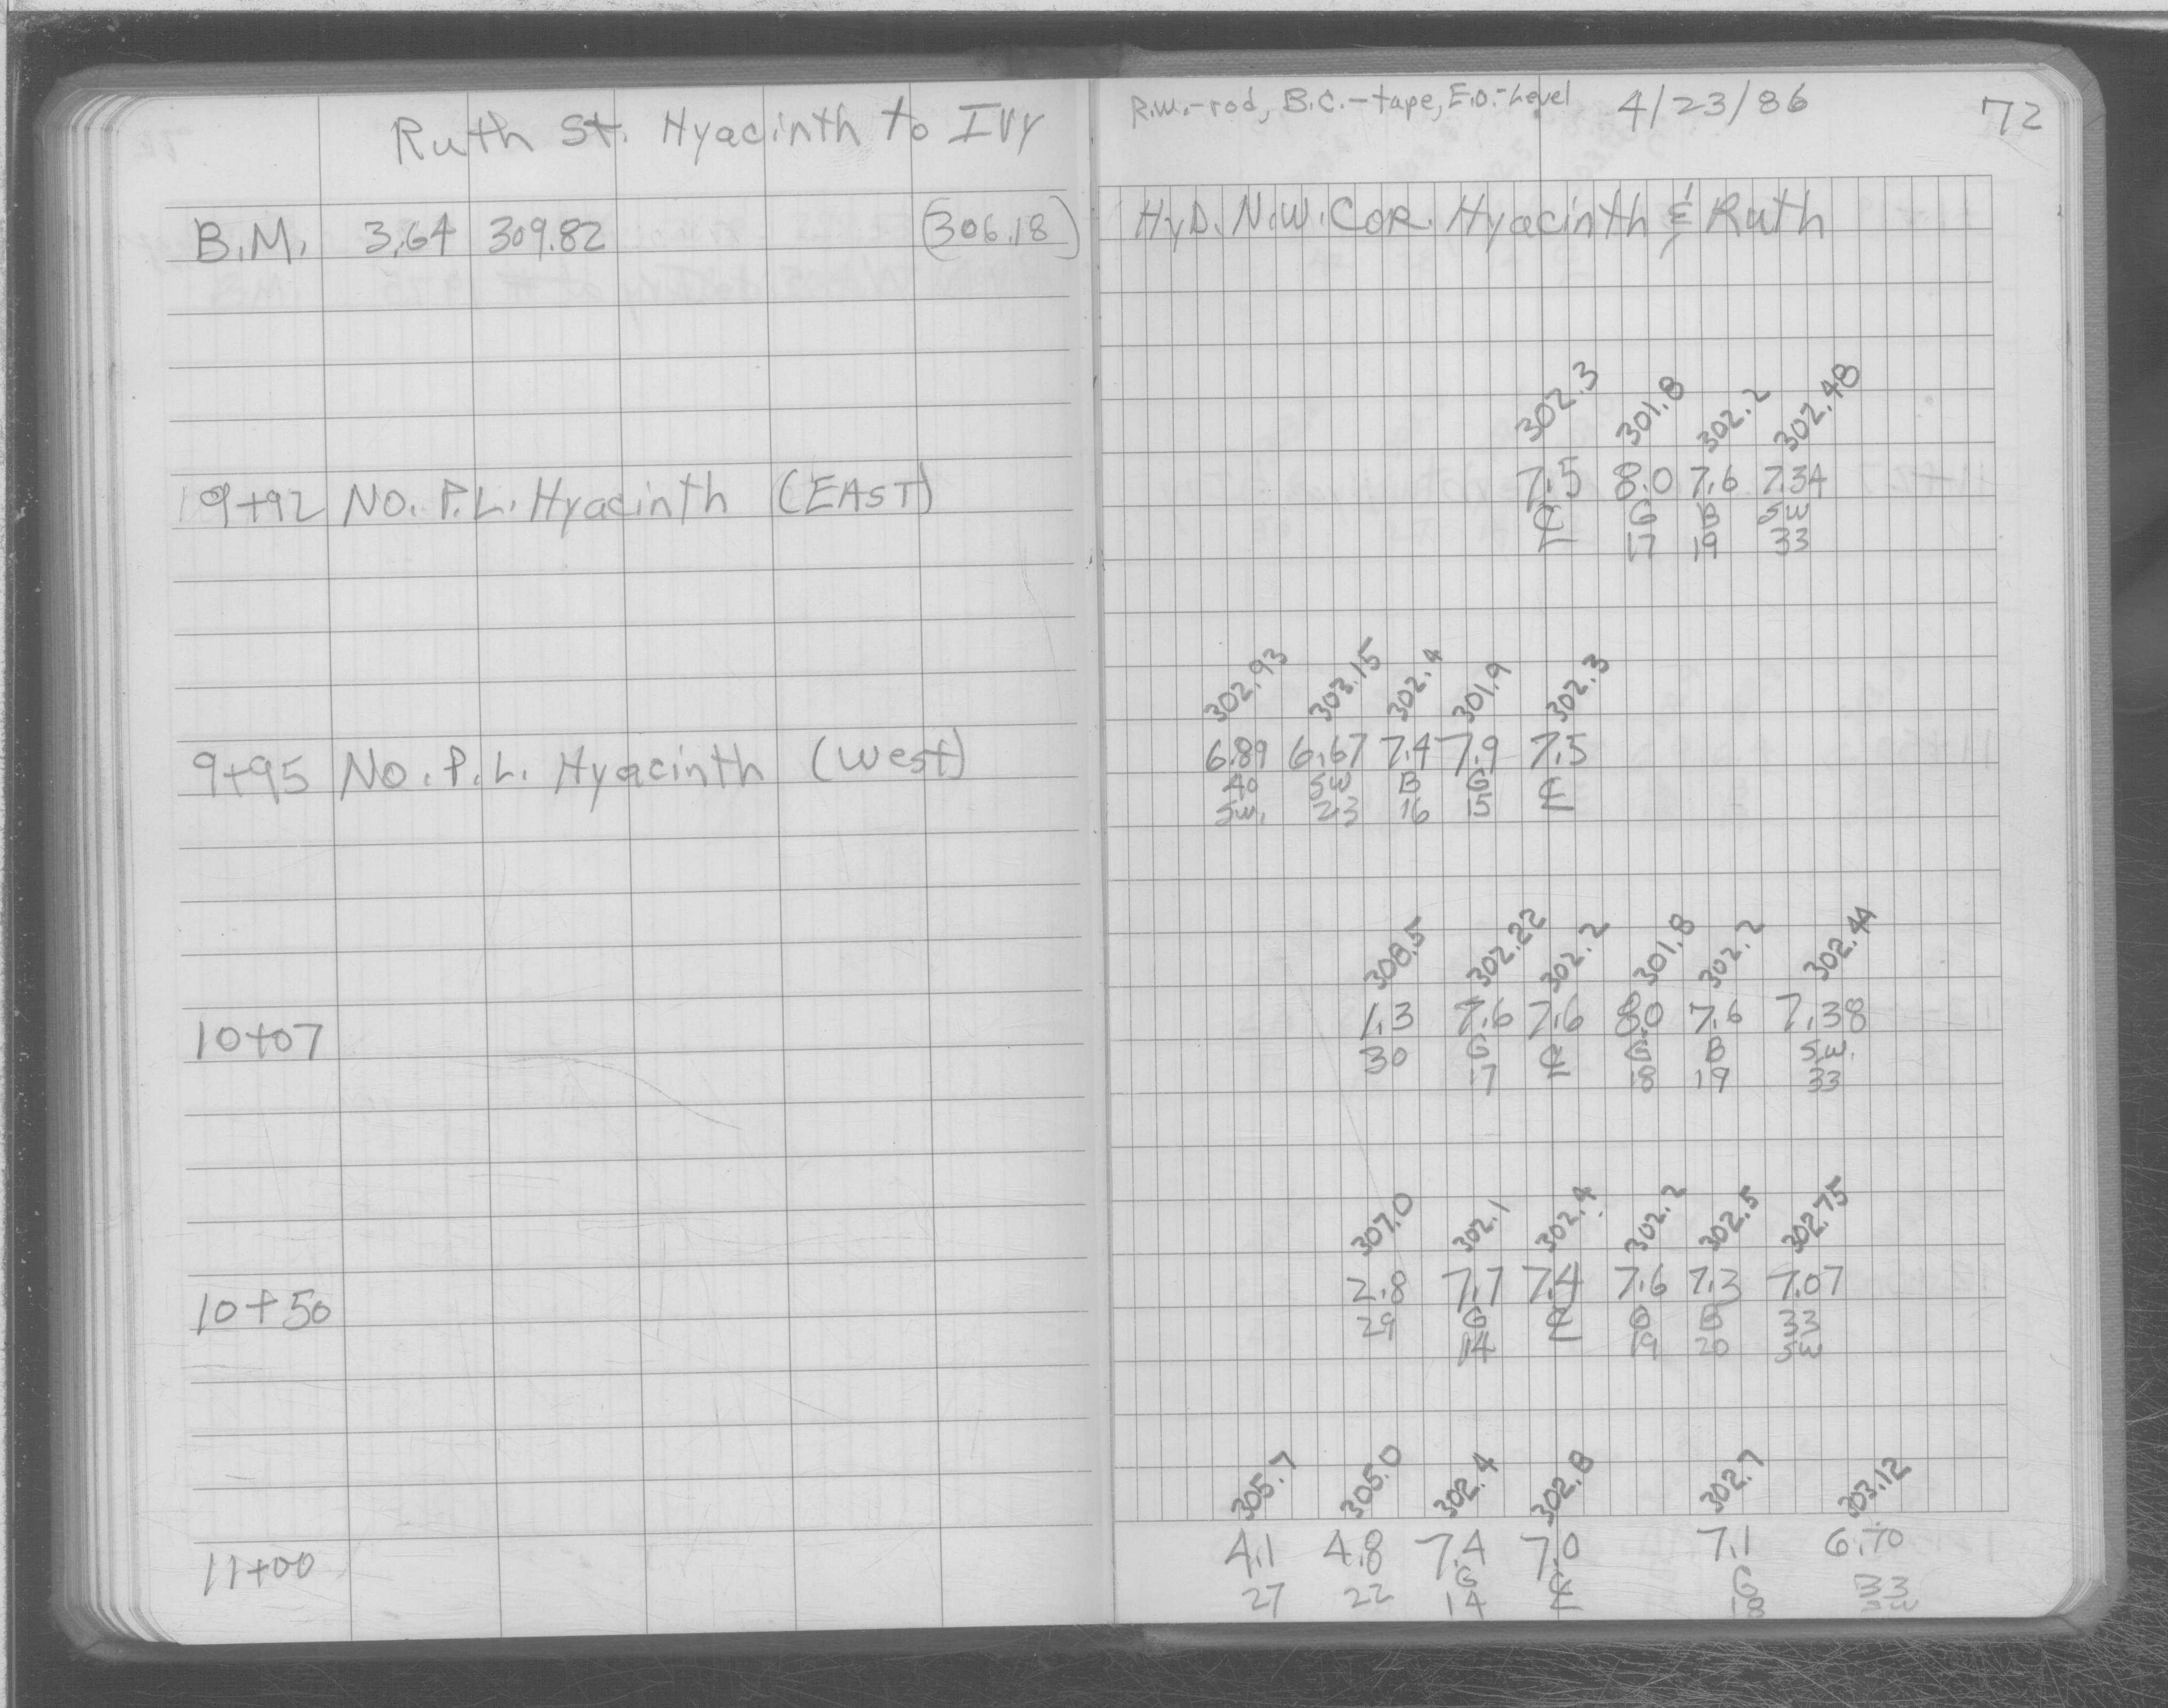 Ruth St. Hyacinth to Ivy
B.M. 3.64 309.82 (306.18)
9+92 No. P.L. Hyacinth (EAST)
9+95 No. P.L. Hyacinth (West)
10+07
10+50
11+00
R.W.-rod, B.C.-tape, E.O.-Level 4/23/86 72
HyD. N.W. COR. Hyacinth & Ruth
302.3 301.8 302.2 302.48
7.5 8.0 7.6 7.34
℄ G B SW
17 19 33
302.93 303.15 302.4 301.9 302.3
6.89 6.67 7.4 7.9 7.5
40 SW B G ℄
SW. 23 16 15
308.5 302.22 302.2 301.8 302.2 302.44
1.3 7.6 7.6 8.0 7.6 7.38
30 G ℄ G B S.W.
17 18 19 33
307.0 302.1 302.4 302.2 302.5 302.75
2.8 7.7 7.4 7.6 7.3 7.07
29 G ℄ G B 33
14 19 20 SW
305.7 305.0 302.4 302.8 302.7 303.12
4.1 4.8 7.4 7.0 7.1 6.70
27 22 G ℄ G 33
14 18 SW